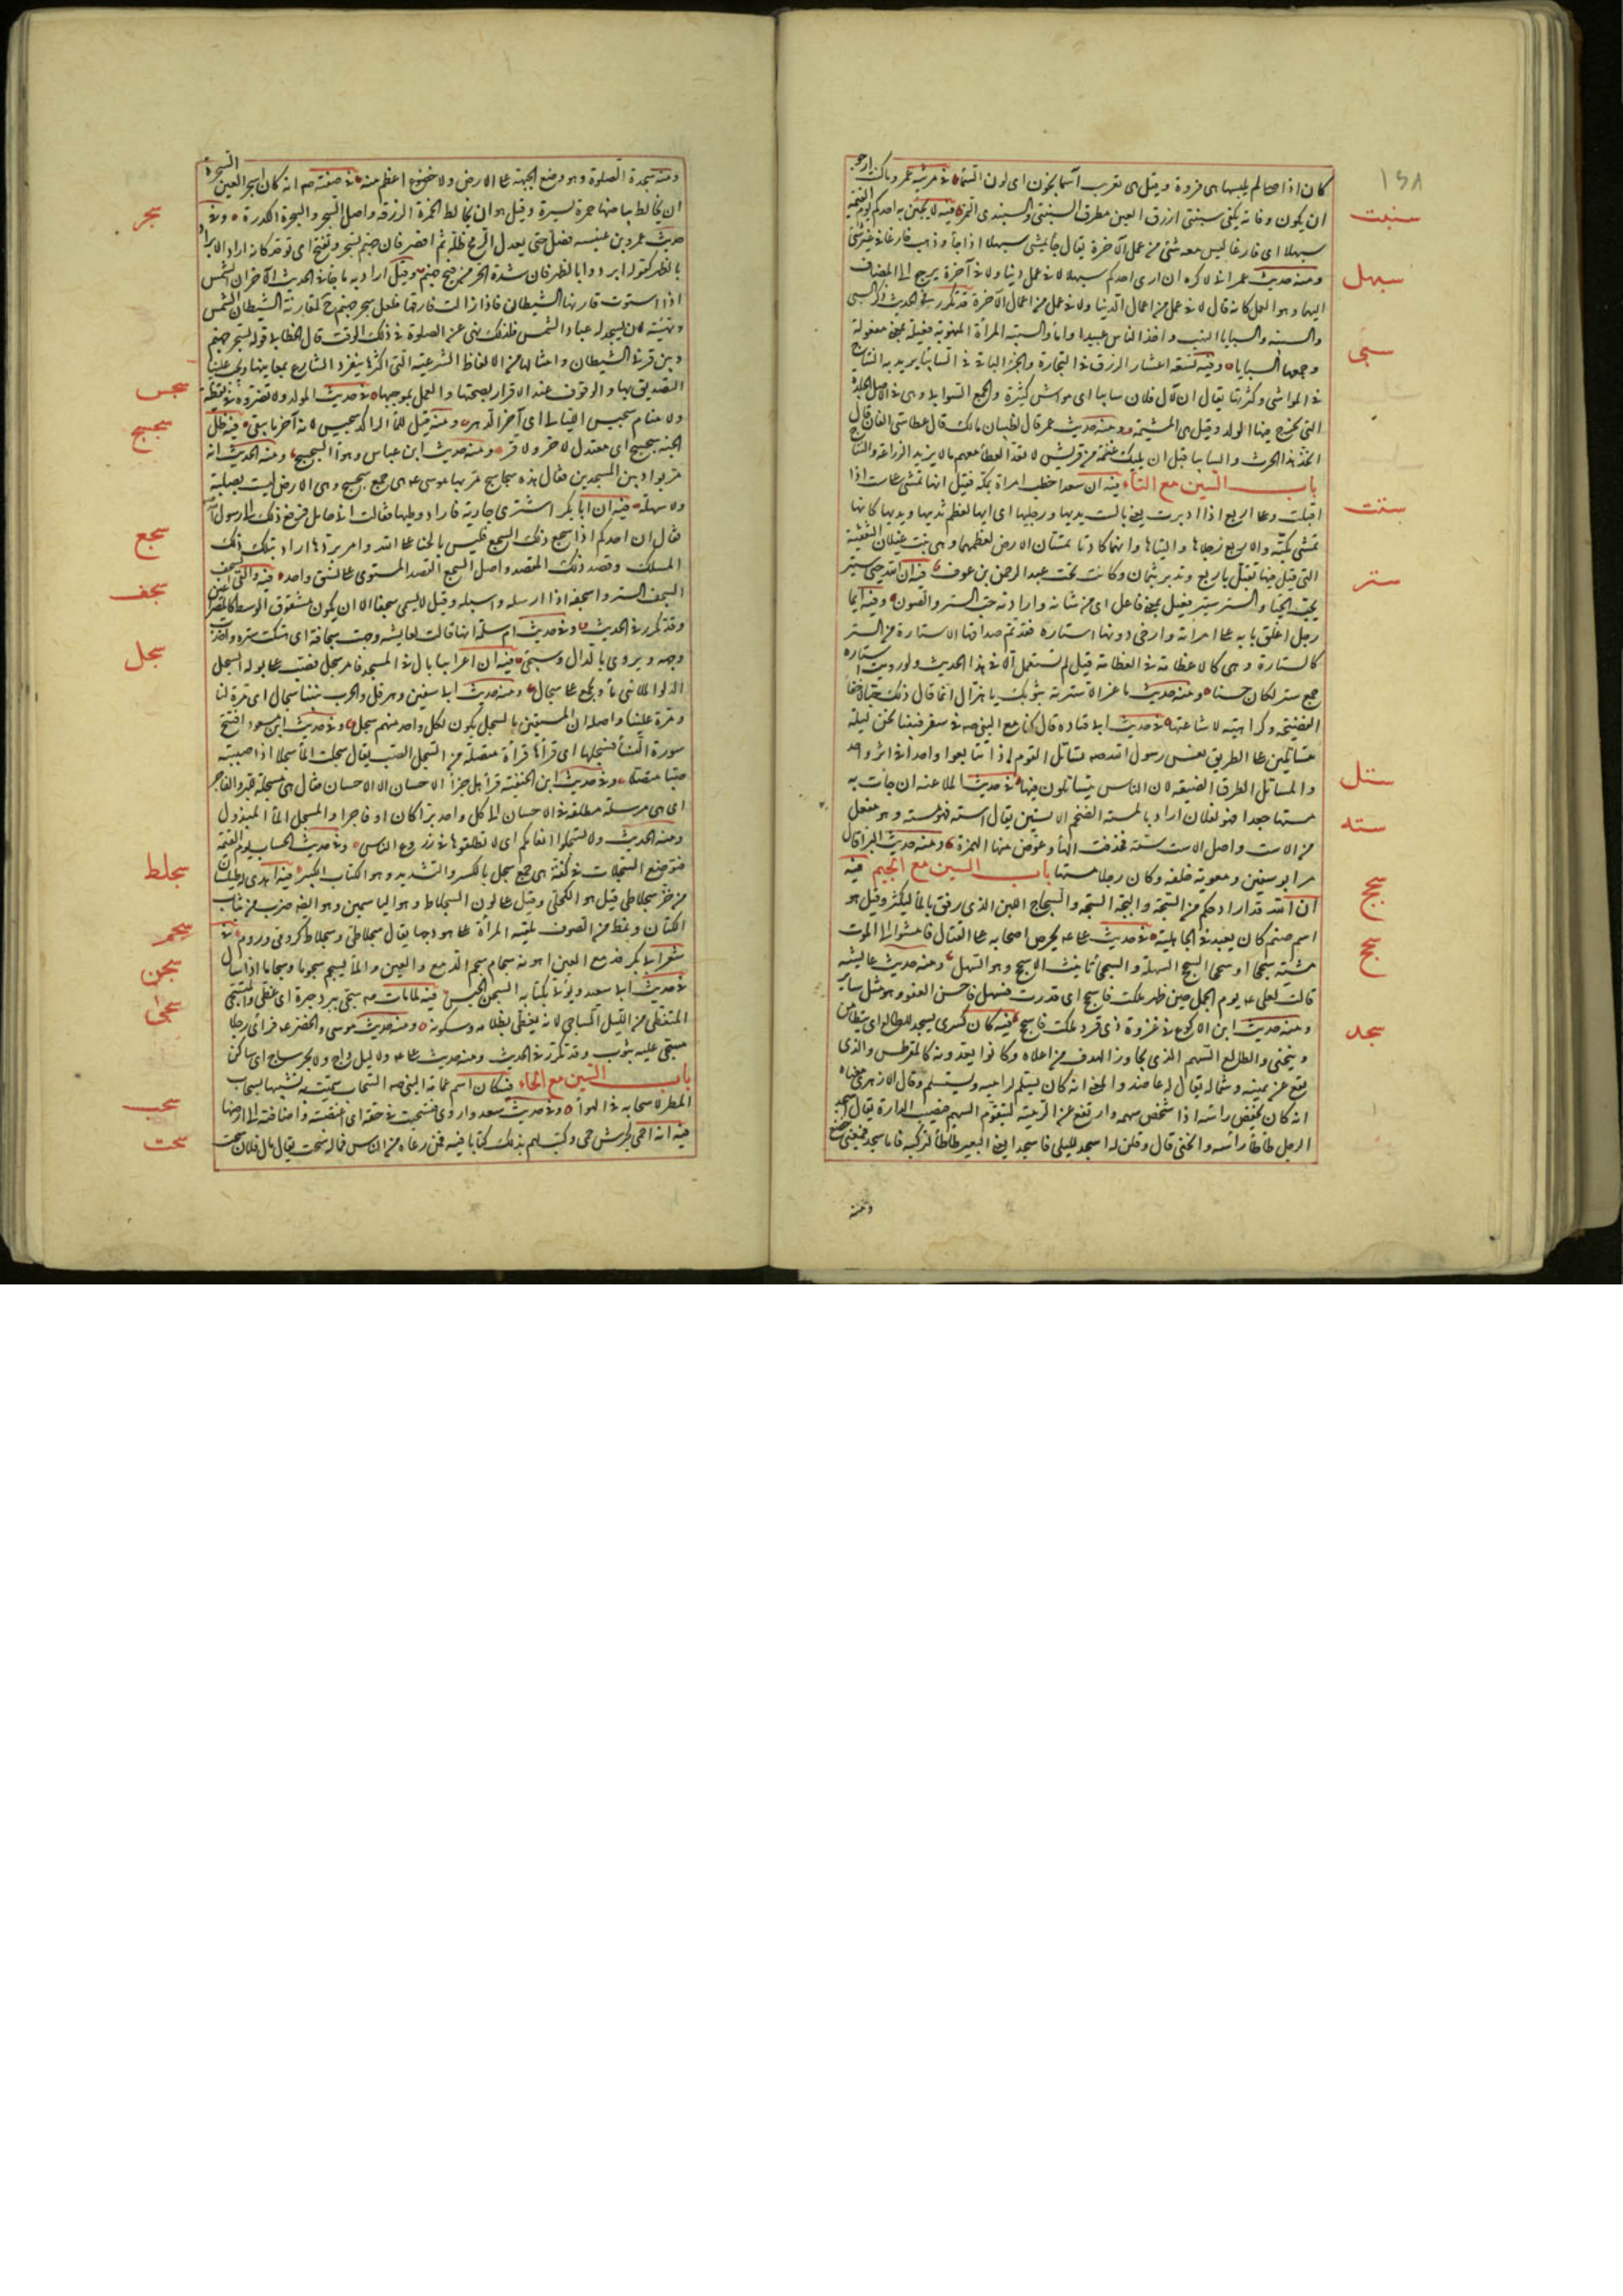 ١٥٨
كان اذا صالم يلبسها هى فروة وقيل هى تعريب آسمانجون اى لون السماء في مرثيه عمر وما كنت ارجو
ان يكون وفاته بكفى سبنتى ازرق العين مطرق السبنتى والسبندى النمر فيه لا يجيئن احدكم يوم القيمة
سبهللا اى فارغا ليس معه شئ من عمل الآخرة يقال جاء يمشى سبهللا اذا جاء وذهب فارغا في غير شئ
ومنه حديث عمر انى لاكره ان ارى احدكم سبهللا لا في عمل دنيا ولا في آخرة
اليهما وهو العمل كانه قال لا في عمل من اعمال الدنيا ولا في عمل من اعمال الآخرة قد تكرر في الحديث ذكر السبى
والسبية والسبايا النهب واخذ الناس عبيدا واماء والسبية المرأة المنهوبة فعيلة بمعنى مفعولة
وجمعها السبايا وفيه تسعة اعشار الرزق في التجارة والجزء الباقى في السابيا يريد به النتاج
في المواشى وكثرتها يقال ان لآل فلان سابيا اى مواشى كثيرة والجمع السوابى وهى في الاصل الجلدة
التى يخرج فيها الولد وقيل هى المشيمة ومنه حديث عمر قال لظبيان مالك قال عطائى الفان قال
اتخذ من هذا الحرث والسابيا قبل ان يليك غلمة من قريش لا تعد العطاء معهم مالا يريد الزراعة والنتاج
باب السين مع التاء فيه ان سعدا خطب امرأة بمكة فقيل انها تمشى على ست اذا
اقبلت وعلى اربع اذا ادبرت يعنى بالست يديها ورجليها وثدييها اى انها لعظم ثدييها ويديها كانها
تمشى مكبة والاربع رجلاها واليتاها وانهما كادتا تمسان الارض لعظمهما وهى بنت غيلان الثقفية
التى قيل فيها تقبل باربع وتدبر بثمان وكانت تحت عبد الرحمن بن عوف فيه ان الله حيى ستير
يحب الحيا والستر ستير فعيل بمعنى فاعل اى من شانه وارادته حب الستر والصون وفيه ايما
رجل اغلق بابه على امرأته وارخى دونها استارة فقد تم صداقها الاستارة من الستر
كالستارة وهى كالاعظامة في العظامة قيل لم تستعمل الا في هذا الحديث ولو رويت استاره
جمع ستر لكان حسنا ومنه حديث ماعز الا سترته بثوبك يا هزال انما قال ذلك حبا لاخفاء
الفضيحة وكراهية لاشاعتها في حديث ابى قتاده قال كنا مع النبى صه في سفر فبينا نحن ليلة
متساتلين عن الطريق نعس رسول الله صه تساتل القوم اذا تتابعوا واحدا في اثر واحد
والمساتل الطرق الضيقة لان الناس يتساتلون فيها في حديث الملاعنة ان جاءت به
مستها جعدا فهو لفلان اراد بالمسته الضخم الاليتين يقال استه فهو مسته وهو مفعل
من الاست واصل الاست سته فحذفت الهاء وعوض منها الهمزة ومنه حديث البراء قال
مر ابو سفين ومعوية خلفه وكان رجلا مستها باب السين مع الجيم فيه
ان الله قد اراحكم من السجة والبجة السجة والسجاج اللبن الذى رقق بالماء ليكثر وقيل هو
اسم صنم كان يعبد في الجاهلية في حديث على عه يحرض اصحابه على القتال فامشوا الى الموت
مشية سجحا او سجحاء السجح السهلة والسجحاء تانيث الاسجح وهو السهل ومنه حديث عايشه
قالت لعلى عه يوم الجمل حين ظهر ملكت فاسجح اى قدرت فسهل فاحسن العفو وهو مثل ساير
ومنه حديث ابن الاكوع في غزوة ذى قرد ملكت فاسجح فيه كان كسرى يسجد للطالع اى يتطامن
وينحنى والطالع السهم الذى يجاوز الهدف من اعلاه وكانوا يعدونه كالمقرطس والذى
يقع عن يمينه وشماله يقال له عاضد والمعنى انه كان يسلم لراميه ويستسلم وقال الازهرى معناه
انه كان يخفض رأسه اذا شخص سهمه وارتفع عن الرمية ليتقوم السهم فيصيب الدارة يقال اسجد
الرجل طأطأ رأسه وانحنى قال وقلن له اسجد لليلى فاسجدا يعنى البعير طأطأ لتركبه فاما سجد فبمعنى خضع
ومنه
سنبت
سبهل
سبى
ستت
ستر
ستل
سته
سجج
سجح
سجد
ومنه سجدة الصلوة وهو وضع الجبهة على الارض ولا خضوع اعظم منه في صفته صه انه كان اسجر العين السجرة
ان يخالط بياضها حمرة يسيرة وقيل هو ان يخالط الحمرة الزرقة واصل السجر والسجرة الكدرة وفي
حديث عمرو بن عبسه فصل حتى يعدل الرمح ظله ثم اقصر فان جهنم تسجر وتفتح اى توقد كانه اراد الابراد
بالظهر كقوله ابردوا بالظهر فان شدة الحر من فيح جهنم وقيل اراد به ما جاء في الحديث الآخر ان الشمس
اذا استوت قارنها الشيطان فاذا زالت فارقها فلعل سجر جهنم ح لمقارنة الشيطان الشمس
وتهيئته لان يسجد له عباد الشمس فلذلك نهى عن الصلوة في ذلك الوقت قال الخطابى قوله تسجر جهنم
وبين قرنى الشيطان وامثالها من الالفاظ الشرعية التى اكثرها ينفرد الشارع بمعانيها ويجب علينا
التصديق بها والوقوف عند الاقرار بصحتها والعمل بموجبها في حديث المولد ولا تضروه في يقظة
ولا منام سجيس الليالى اى آخر الدهر ومنه قيل للماء الراكد سجيس لانه آخر ما يبقى فيه ظل
الجنة سجسج اى معتدل لا حر ولا قر ومنه حديث ابن عباس وهواؤها السجسج ومنه الحديث انه
مر بواد بين المسجدين فقال هذه سجاسج مر بها موسى عه هى جمع سجسج وهى الارض ليست بصلبة
ولا سهلة فيه ان ابا بكر اشترى جارية فاراد وطيها فقالت انى حامل فرفع ذلك الى رسول الله
فقال ان احدكم اذا سجع ذلك المسجع فليس بالخيار على الله وامر بردها اراد سلك ذلك
المسلك وقصد ذلك المقصد واصل السجع القصد المستوى على نسق واحد فيه والقى السجف
السجف الستر واسجفه اذا ارسله واسبله وقيل لا يسمى سجفا الا ان يكون مشقوق الوسط كالمصراعين
وقد تكرر في الحديث وفي حديث ام سلمة انها قالت لعايشه وجهت سجافته اى هتكت ستره واخذت
وجهه ويروى بالدال وسيجئ فيه ان اعرابيا بال في المسجد فامر بسجل فصب على بوله السجل
الدلو الملأى ماء ويجمع على سجال ومنه حديث ابى سفين وهرقل والحرب بيننا سجال اى مرة لنا
ومرة علينا واصله ان المستقين بالسجل يكون لكل واحد منهم سجل وفي حديث ابن مسعود افتتح
سورة النساء فسجلها اى قرأها قرأة متصلة من السجل الصب يقال سجلت الماء سجلا اذا صببته
صبا متصلا وفي حديث ابن الحنفية قرأ هل جزاء الاحسان الا الاحسان فقال هى مسجلة للبر والفاجر
اى هى مرسلة مطلقة في الاحسان الى كل واحد برا كان او فاجرا والمسجل الماء المبذول
ومنه الحديث ولا تسجلوا انعامكم اى لا تطلقوها في زروع الناس وفي حديث الحساب يوم القيمة
فتوضع السجلات في كفة هى جمع سجل بالكسر والتشديد وهو الكتاب الكبير فيه اهدى له طيلسان
من خز سجلاطى قيل هو الكحلى وقيل على لون السجلاط وهو الياسمين وهو ايضا ضرب من ثياب
الكتان ونمط من الصوف تلقيه المرأة على هودجها يقال سجلاطى وسجلاط كرومى وروم في
شعر ابى بكر فدمع العين اهونه سجام سجم الدمع والعين والماء يسجم سجوما وسجاما اذا سال
في حديث ابى سعد ويؤتى بكتابه السجن الحبس فيه لما مات صه سجى ببرد حبرة اى غطى والمتسجى
المتغطى من الليل الساجى لانه يغطى بظلامه وسكونه ومنه حديث موسى والخضر عه فرأى رجلا
مسجى عليه بثوب وقد تكرر في الحديث ومنه حديث على عه ولا ليل داج ولا بحر ساج اى ساكن
باب السين مع الحاء فيه كان اسم عمامة النبى صه السحاب سميت به تشبيها بسحاب
المطر لانسحابه في الهواء وفي حديث سعد واروى فتسحبت في حقه اى اغتصبته واضافته الى ارضها
فيه انه احمى لجرش حمى وكتب لهم بذلك كتابا فيه فمن رعاه من الناس فماله سحت يقال مال فلان سحت
سجر
سجس
سجسج
سجع
سجف
سجل
سجلط
سجم
سجن
سجى
سحب
سحت